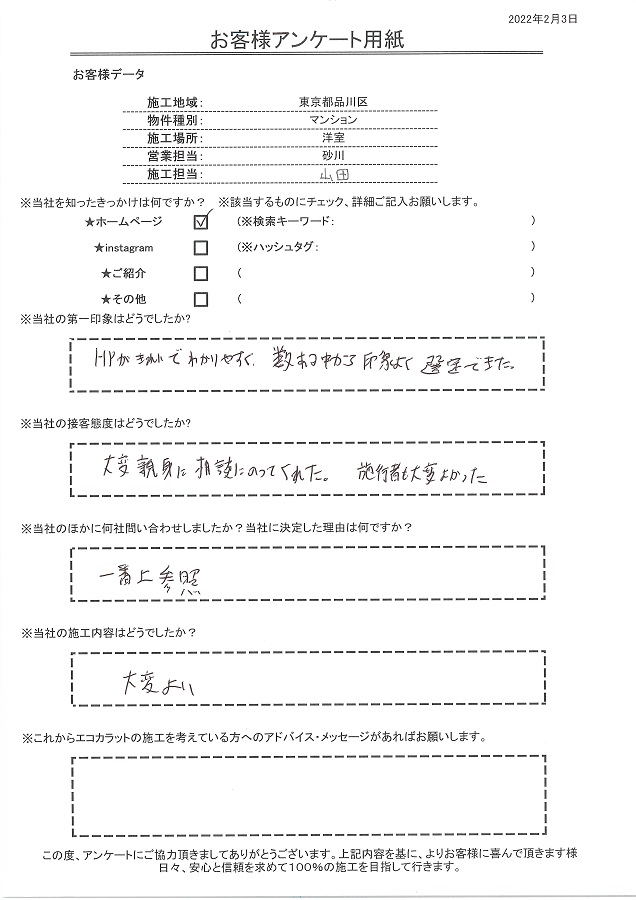 2022年2月3日
お客様アンケート用紙
お客様データ
施工地域： 東京都品川区
物件種別： マンション
施工場所： 洋室
営業担当： 砂川
施工担当： 山田
※当社を知ったきっかけは何ですか？ ※該当するものにチェック、詳細ご記入お願いします。
★ホームページ ☑ (※検索キーワード： )
★instagram □ (※ハッシュタグ： )
★ご紹介 □ ( )
★その他 □ ( )
※当社の第一印象はどうでしたか?
HPがきれいでわかりやすく、数ある中から印象よく選定できた。
※当社の接客態度はどうでしたか?
大変親身に相談にのってくれた。 施行者も大変よかった
※当社のほかに何社問い合わせしましたか？当社に決定した理由は何ですか？
一番上参照
※当社の施工内容はどうでしたか？
大変よい
※これからエコカラットの施工を考えている方へのアドバイス・メッセージがあればお願いします。
この度、アンケートにご協力頂きましてありがとうございます。上記内容を基に、よりお客様に喜んで頂きます様
日々、安心と信頼を求めて100%の施工を目指して行きます。